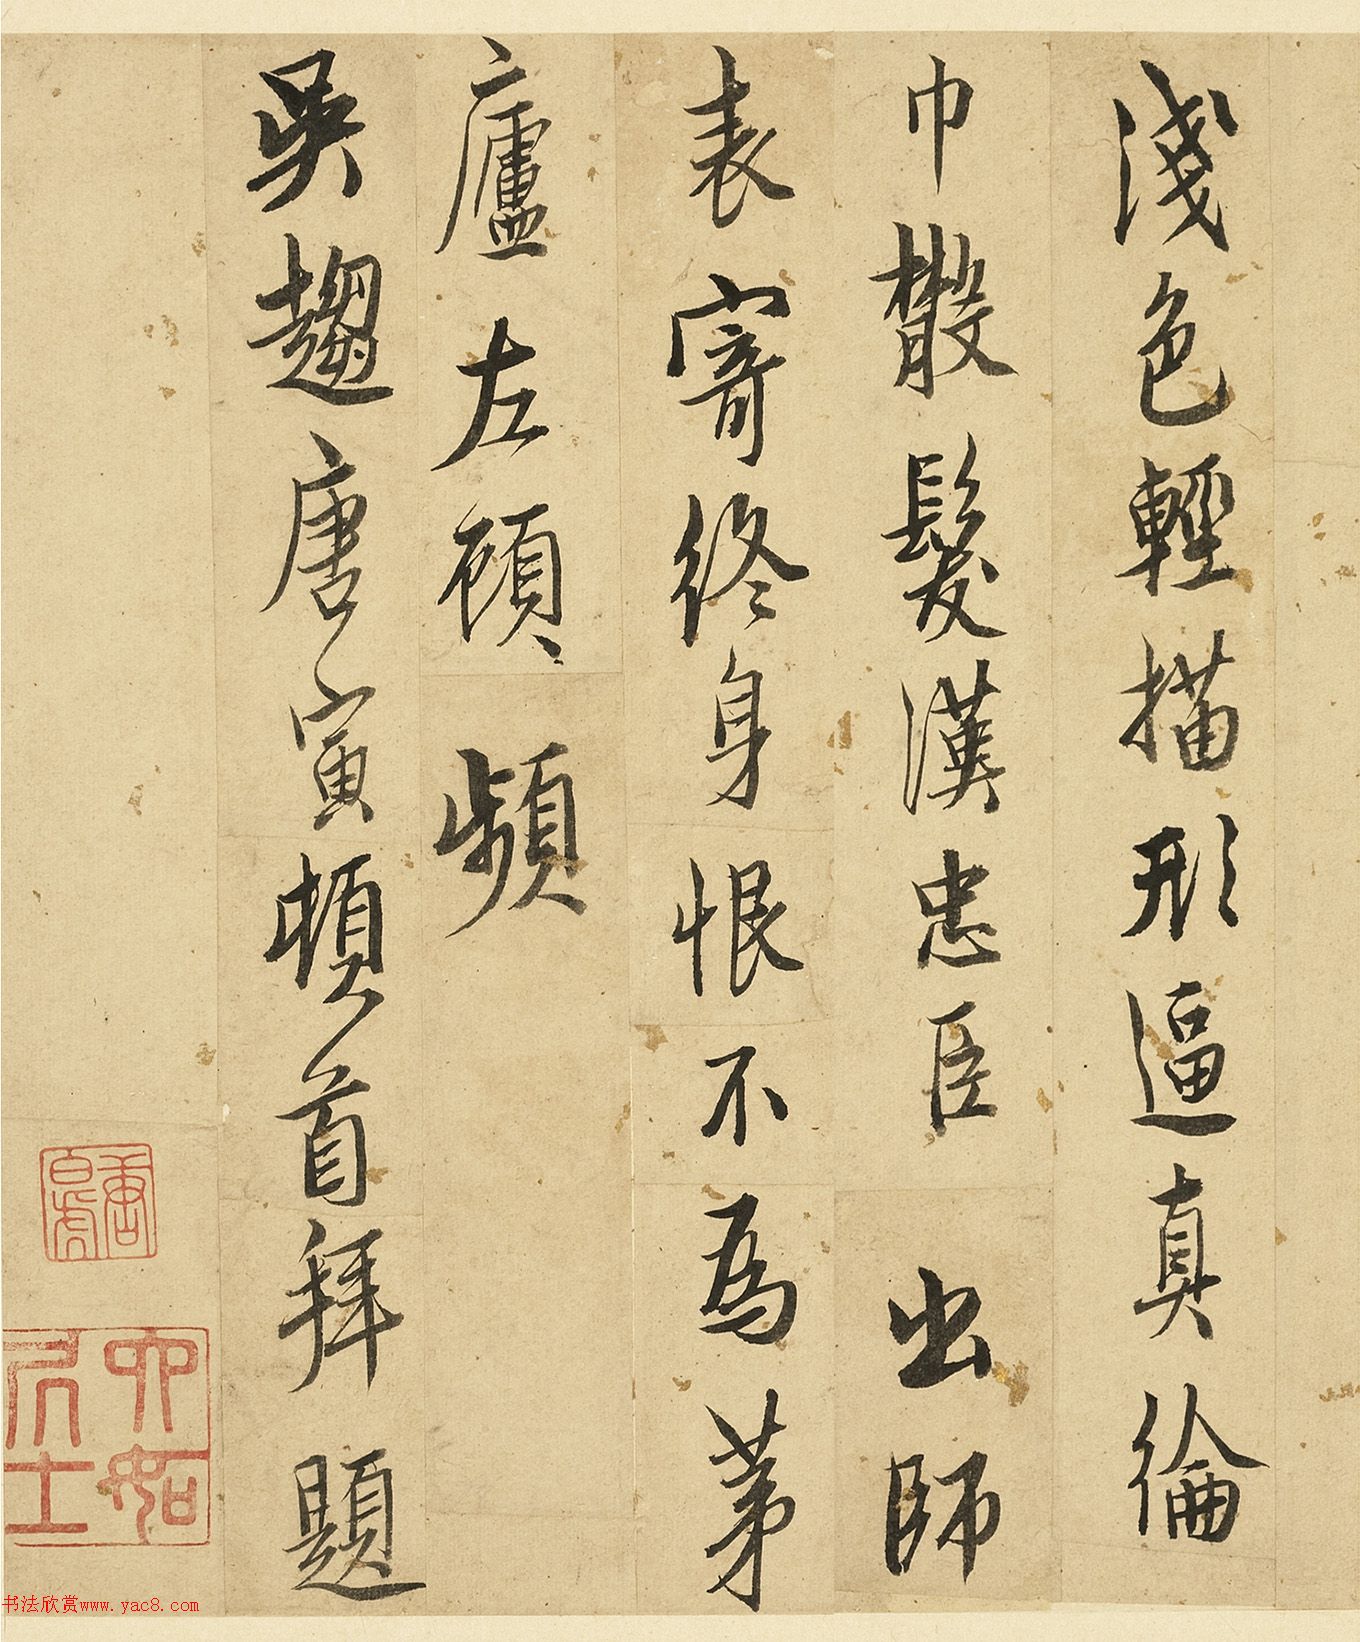 淺色輕描形逼真綸
巾鬖髮漢忠臣出師
表寄終身恨不為茅
廬左顧頻
吳趨唐寅頓首拜題
唐白虎
六如居士
书法欣赏www.yac8.com